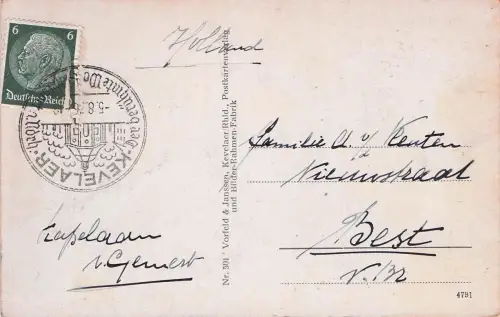 6 6
Deutsches Reich
KEVELAER
berühmte
5.8.
Holland
Familie A. v/d Heuten
Nieuwstraat
Best
N. Br
Kapelaan
v. Gemert
Nr. 501 Vorfeld & Janssen, Kevelaer/Rhld. Postkartenverlag
und Bilder-Rahmen-Fabrik
4791